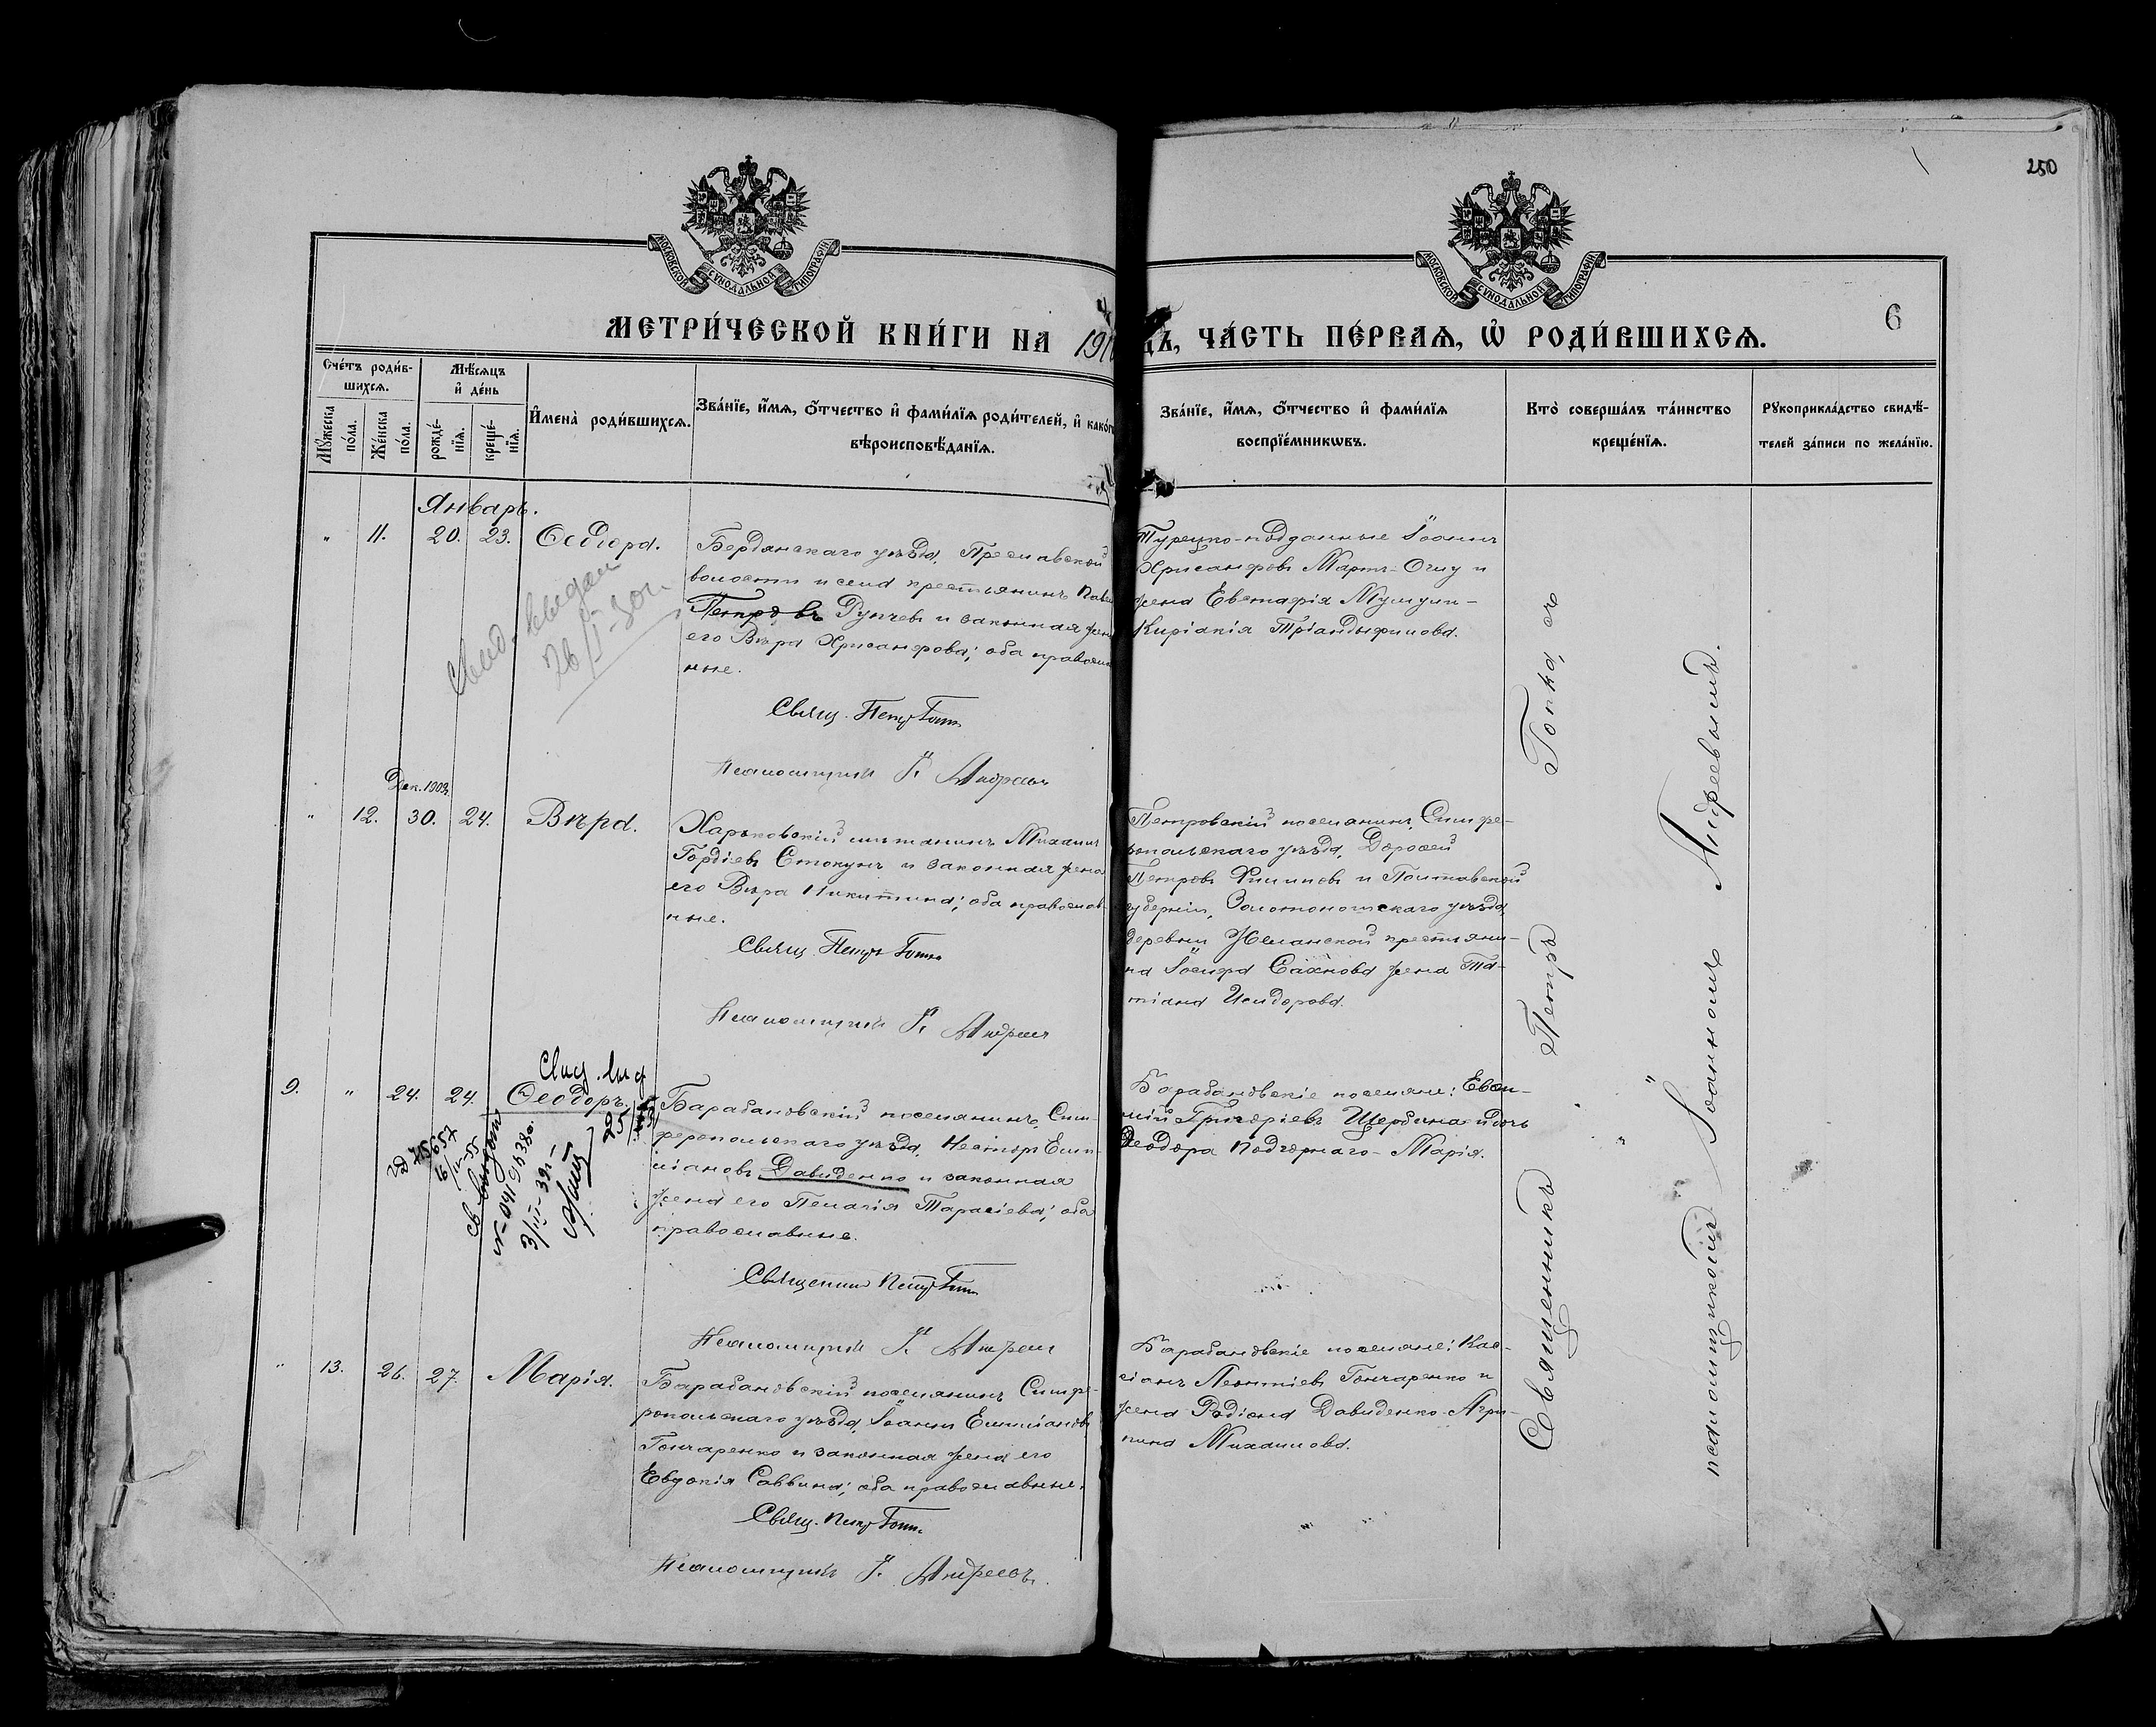 250
МОСКОВСКОЙ СѴНОДАЛЬНОЙ ТИПОГРАФІИ
МОСКОВСКОЙ СѴНОДАЛЬНОЙ ТИПОГРАФІИ
6
МЕТРИ́ЧЕСКОЙ КНИ́ГИ НА 191
ДЪ, ЧА́СТЬ ПЕ́РВАѦ, Ѡ҆ РОДИ́ВШИХСѦ.
Сче́тъ роди́в-
шихсѧ.
Мꙋ́жеска
по́ла.
Же́нска
по́ла.
Мѣ́сѧцъ
и҆ де́нь
рожде́-
нїѧ.
креще́-
нїѧ.
И҆мена̀ роди́вшихсѧ.
Зва́нїе, и҆́мѧ, ѻ҆́тчество и҆ фами́лїѧ роди́телей, и҆ како́гѡ
вѣроисповѣ́данїѧ.
Зва́нїе, и҆́мѧ, ѻ҆́тчество и҆ фами́лїѧ
воспрїе́мникѡвъ.
Кто̀ соверша́лъ та́инство
креще́нїѧ.
Рꙋкоприкла́дство свидѣ́-
телей за́писи по жела́нїю.
Январь.
" 11. 20. 23. Ѳеодора.
Бердянскаго уѣзда, Преславской
волости и села крестьянинъ Павелъ
Петровъ Рупчевъ и законная жена
его Вѣра Хрисанфова; оба православ
ные.
Свящ. Петръ Гопка
Псаломщикъ І. Андреевъ
Турецко-подданные Іоаннъ
Хрисанфовъ Мартъ-Оглу и
жена Евстафія
Киріакія Тріандафилова.
Свид. выдан
26/I-30г.
Дек. 1909г.
" 12. 30. 24. Вѣра.
Харьковскій мѣщанинъ Михаилъ
Гордіевъ Стокунъ и законная жена
его Вѣра Никитина; оба православ-
ные.
Свящ. Петръ Гопка
Псаломщикъ І. Андреевъ
Петровскій поселянинъ, Симфе-
ропольскаго уѣзда, Дороѳей
Петровъ Филиповъ и Полтавской
губерніи, Золотоношскаго уѣзда,
деревни крестьяни-
на Іосифа Сахнова жена Та-
тіана Исидорова.
Свид. выд
9. " 24. 24. Ѳеодоръ.
Барабановскій поселянинъ, Сим-
феропольскаго уѣзда, Несторъ Еми-
ліановъ Давиденко и законная
жена его Пелагія Тарасіева; оба
православные.
Священникъ Петръ Гопка
Псаломщикъ І. Андреевъ
Барабановскіе поселяне: Евѳи-
мій Григоріевъ Щербина и дочь
Ѳеодора Подгорнаго - Марія.
св выдано
3/III-39г
" 13. 26. 27. Марія.
Барабановскій поселянинъ Симфе-
ропольскаго уѣзда, Іоаннъ Емиліановъ
Гончаренко и законная жена его
Евдокія Саввина; оба православные.
Свящ. Петръ Гопка
Псаломщикъ І. Андреевъ.
Барабановскіе поселяне: Кас-
сіанъ Леонтіевъ Гончаренко и
жена Родіона Давиденко - Агри-
пина Михаилова.
Священникъ Петръ Гопка, съ
псаломщикомъ Іоанномъ Андреевымъ.